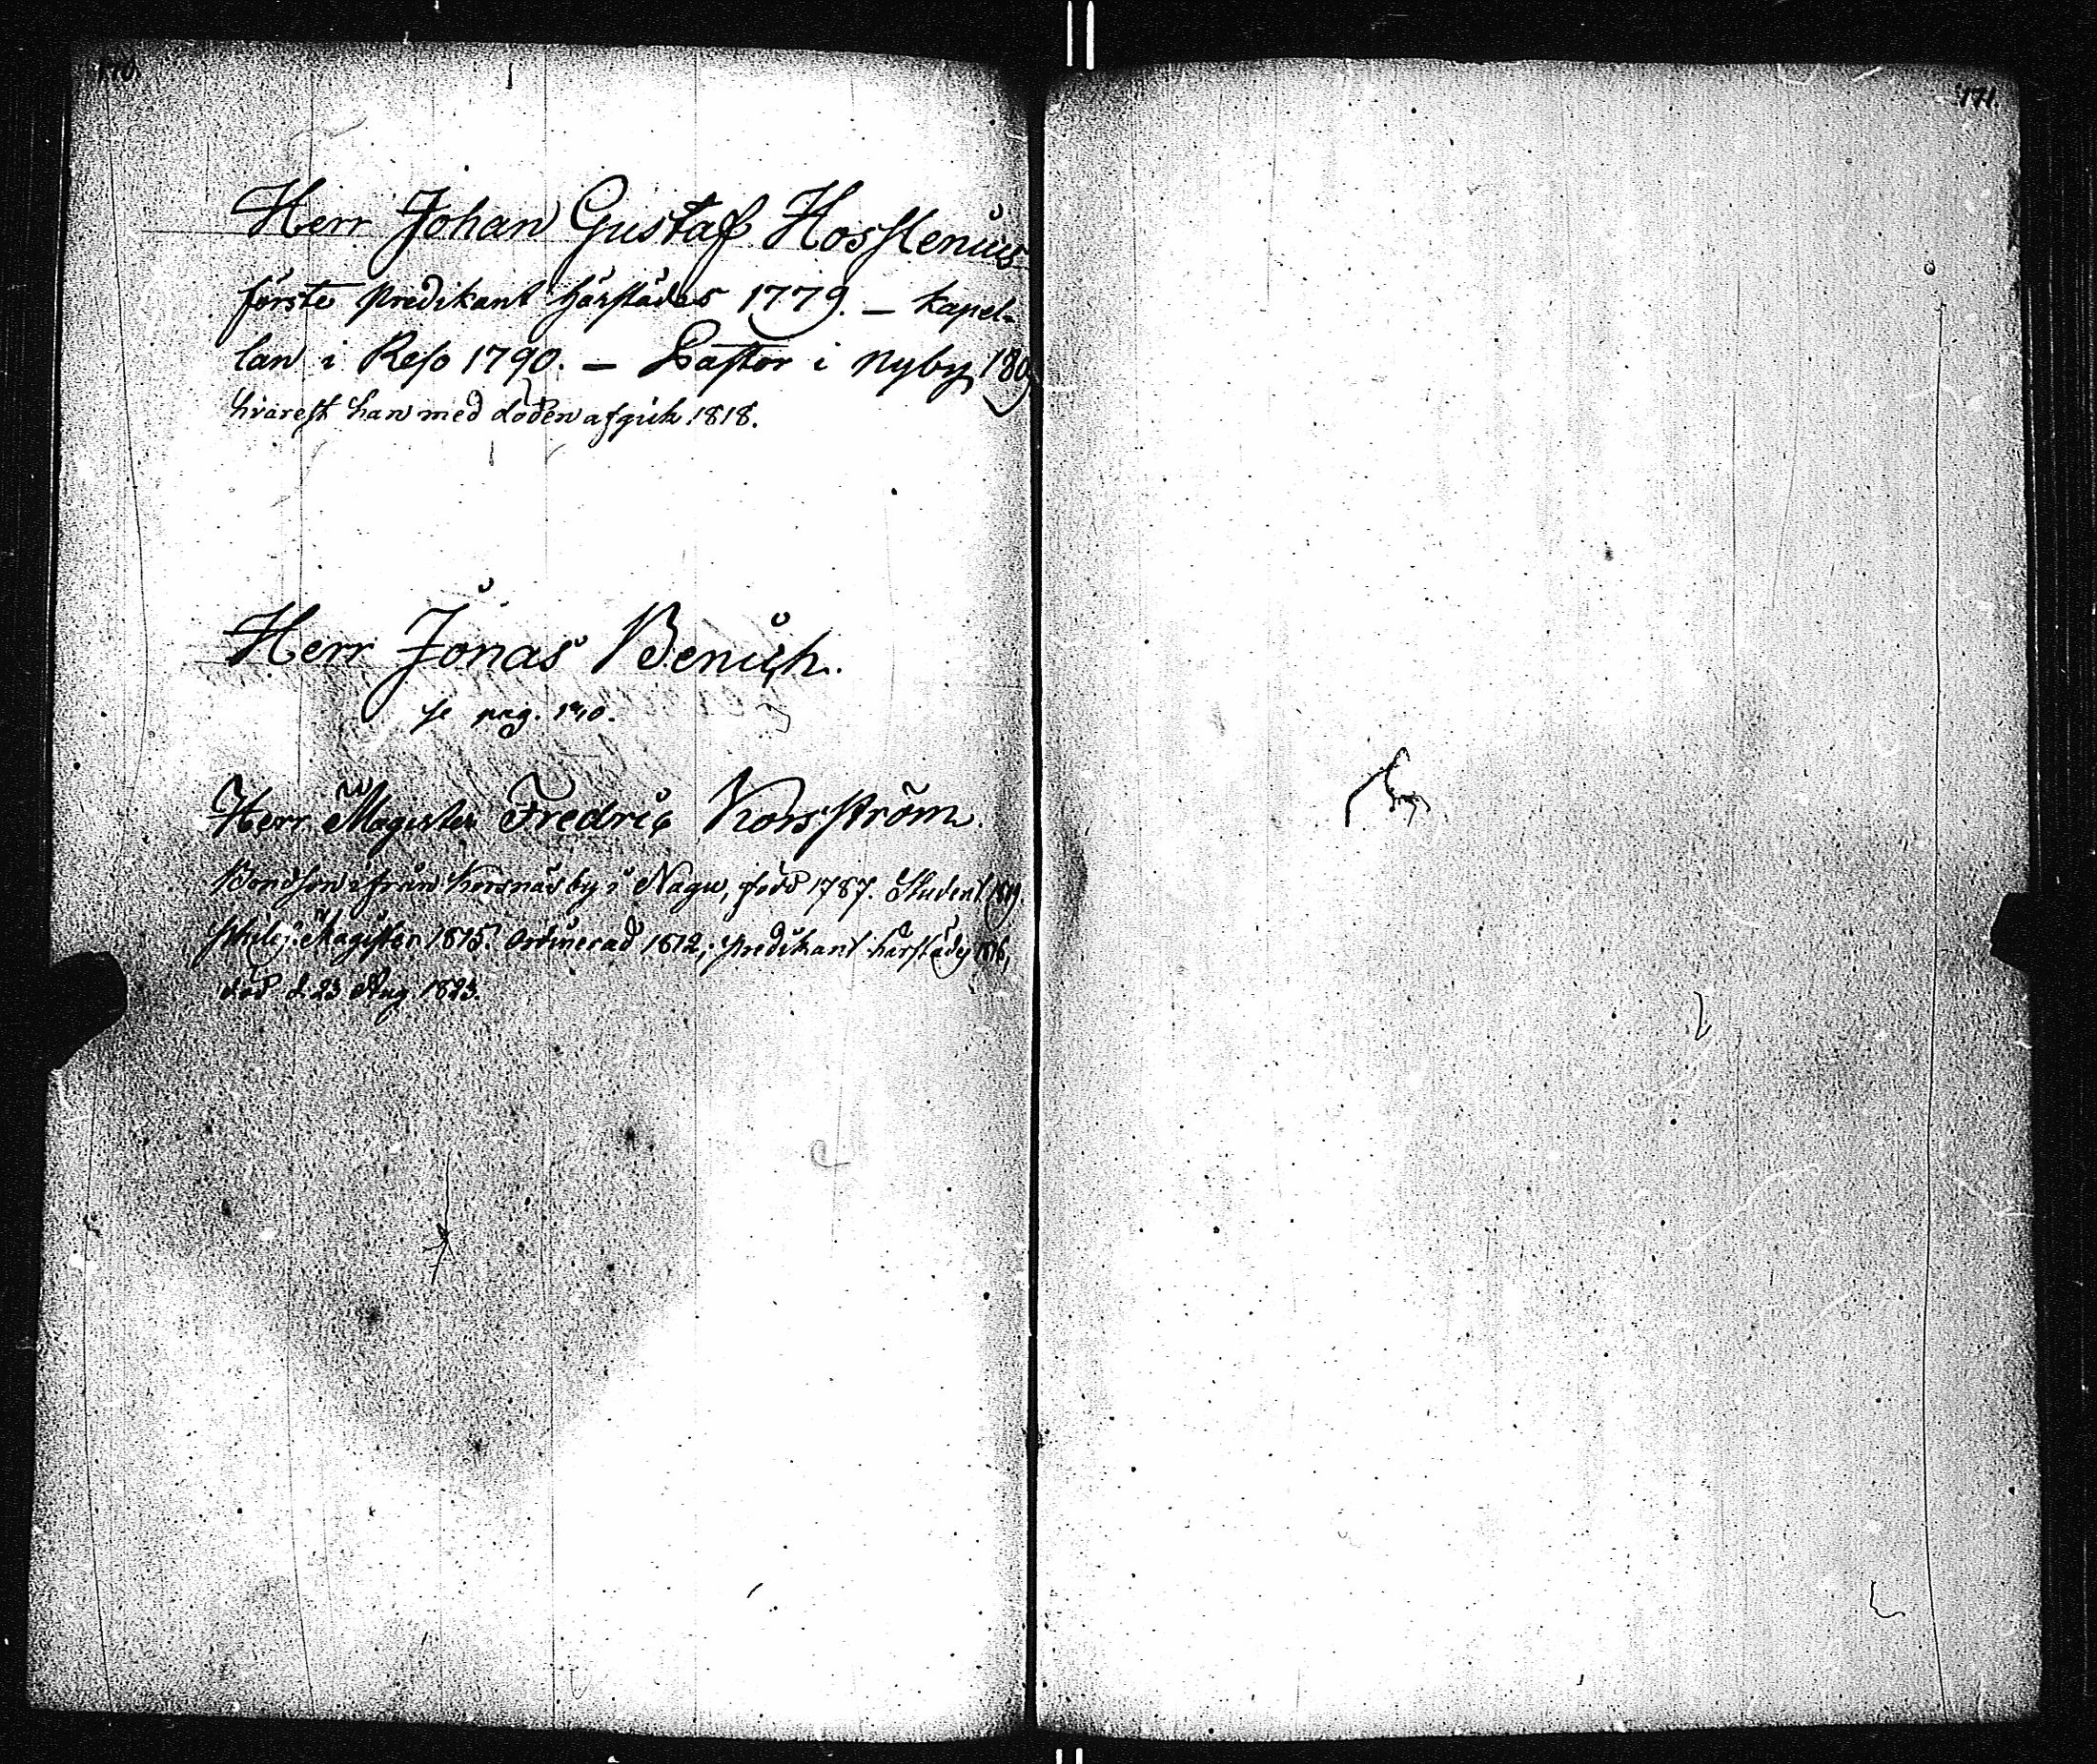 170.
171.
Herr Johan Gustaf Hosslenius
förste predikant härstädes 1779. – kapel-
lan i Reso 1790. – Pastor i Nyby
hvarest han med döden afgick 1818.
Herr Jonas Benück.
se pag.
Herr Magister Fredric Korsström.
Bondson från Korsnäs by i Nagu, född 1787. Student
Philos. Magister 1815. Ordinerad 1812, predikant härstädes
död d. 23 Aug. 1823.